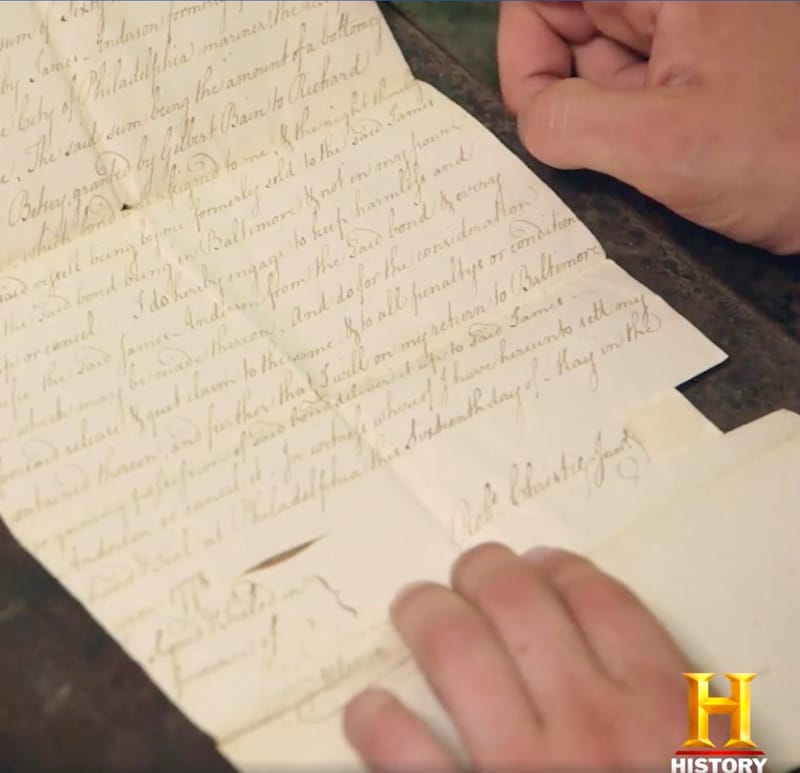 sum of Sixty
by James Anderson formerly
City of Philadelphia mariner, the
The said sum being the amount of a bottomry
Betsey, granted by Gilbert Bain to Richard
which bond assigned to me, & the right
said vessell being by me formerly sold to the Said James
the Said bond being in Baltimore & not in my power
or cancel I do hereby engage to keep harmless and
the Said James Anderson from the Said bond & every
which may be made thereon. And do for the consideration
release & quit claim to the same, & to all penaltys or condition
contained therein, and further that I will on my return to Baltimore
or gaining possession of Said bond deliver it up to Said James
Anderson or cancel it. In witness whereof I have hereunto sett my
hand & Seal at Philadelphia this Sixteenth day of May in the
Robt Christie, Junr
presence of
H
HISTORY